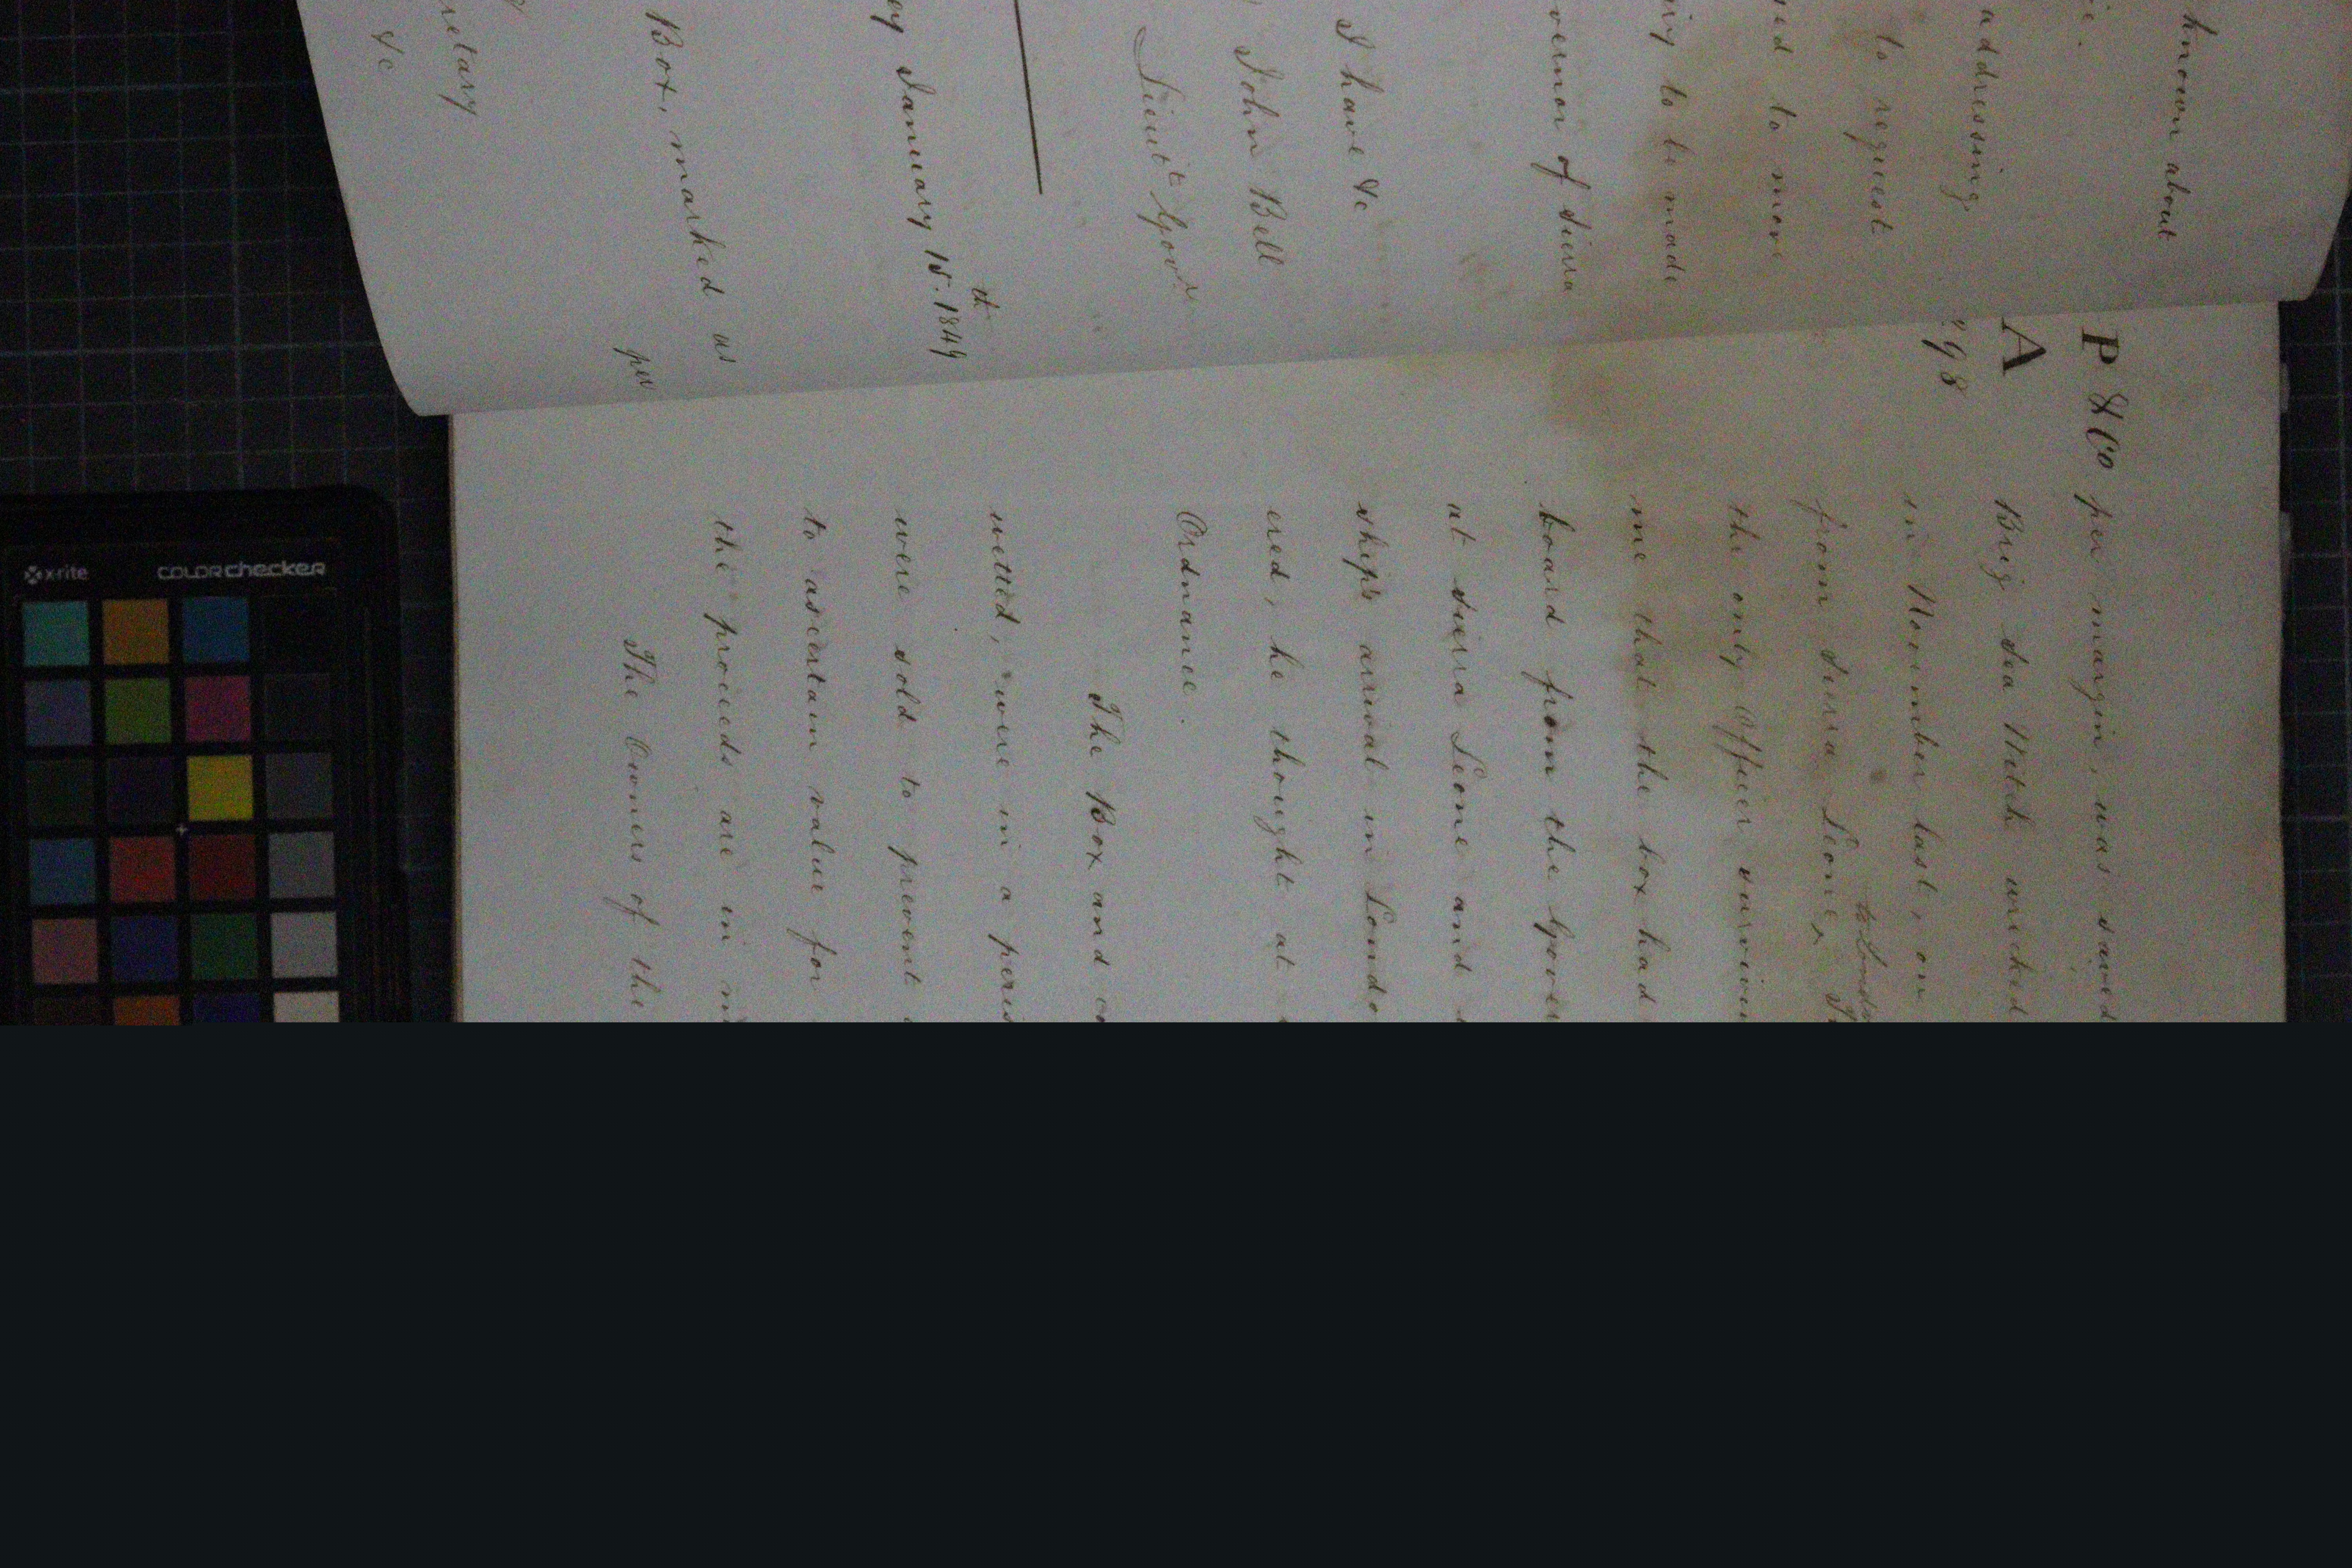 known about
addressing
to request
to more
to be made
of Sierra
I have &c
John Bell
Lieut Govr
January 15th. 1849
Box, marked as
per
retary
&c
P & Co
A
98
per margin, was saved
Brig Sea Witch wrecked
in November last, on
from Sierra Leone to London
the only Officer
me that the box had
board from the
at Sierra Leone and
ship's arrival in
ered, he thought at
Ordnance.
The Box and
wetted, were in a
were sold to prevent
to ascertain value for
the proceeds are in
The Owners of the
x-rite
COLORchecker